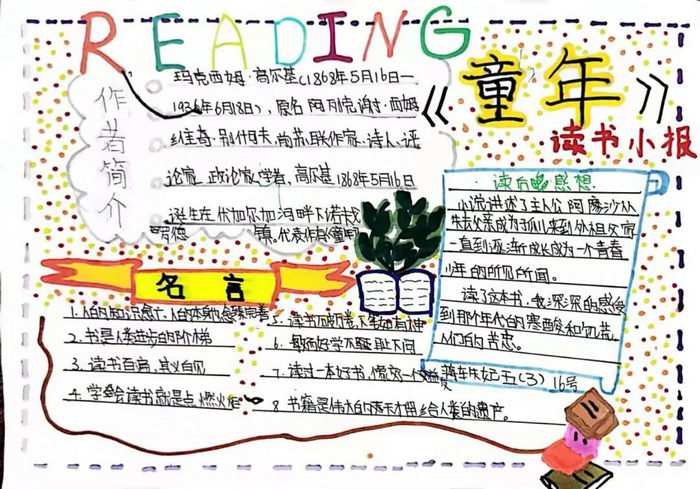 READING
《童年》
读书小报
作者简介
玛克西姆·高尔基(1868年5月16日—
1936年6月18日),原名阿列克谢·西姆
维奇·别什可夫,前苏联作家·诗人,评
论家,政论家,学者,高尔基1868年5月16日
诞生在伏加尔加河畔下诺夫戈
镇。代表作《童年》
读后感想
小说讲述了主人公阿廖沙从
失去父亲成为孤儿来到外祖父家
一直到逐渐成长成为一个青春
少年的所见所闻。
读了这本书,我深深的感受
到那个年代的寒酸和饥荒
人们的苦患。
五(3) 16号
名言
1.人的知识愈广,人的本身也愈臻完善
2.书是人类进步的阶梯
3.读书百遍,其义自见
4.学会读书就是点燃火炬
5.读书破万卷下笔如有神
6.敏而好学不耻下问
7.读过一本好书,像交了一个益友
8.书籍是伟大的天才留给人类的遗产。